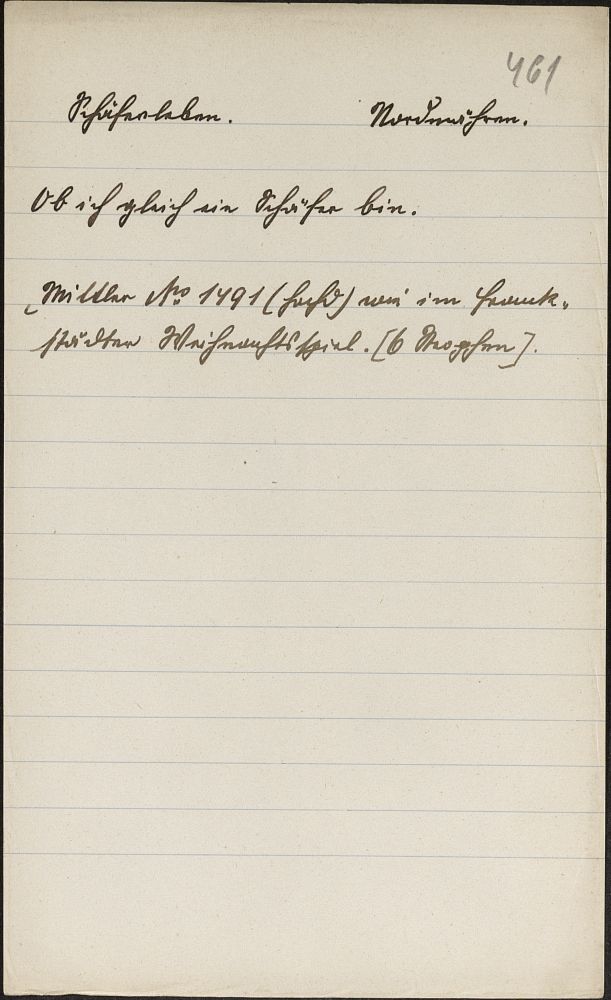 461
Schäferleben. Nordmähren.
Ob ich gleich ein Schäfer bin.
Mittler No 1491 (hochd) wie im Frank-
städter Weihnachtsspiel. [6 Strophen].